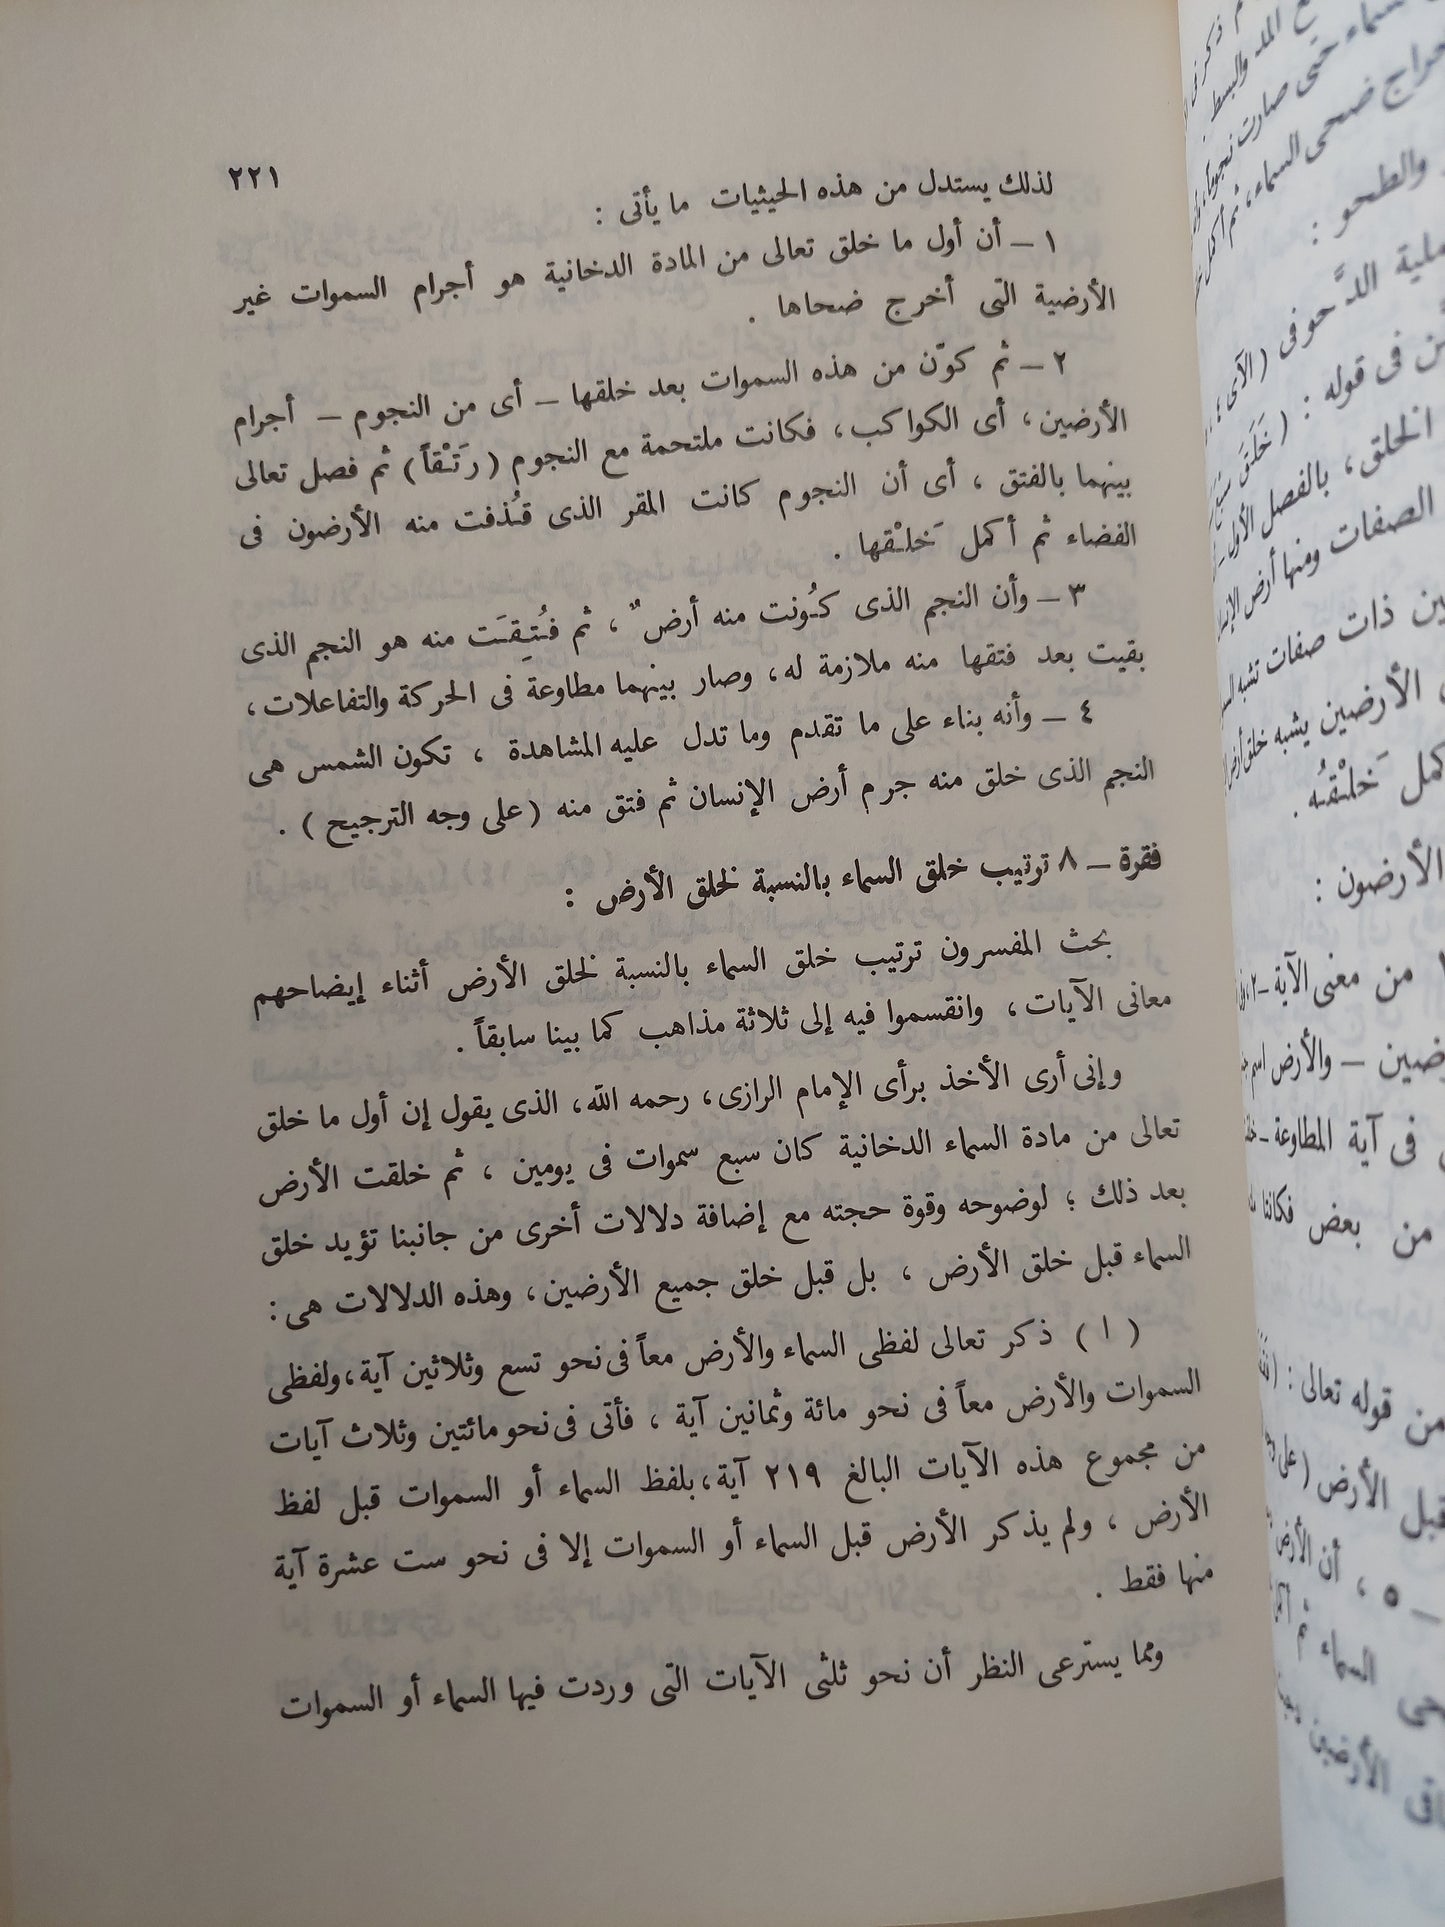 ٢٢١
لذلك يستدل من هذه الحيثيات ما يأتى :
١ – أن أول ما خلق تعالى من المادة الدخانية هو أجرام السموات غير
الأرضية التى أخرج ضحاها .
٢ – ثم كوّن من هذه السموات بعد خلقها – أى من النجوم – أجرام
الأرضين ، أى الكواكب ، فكانت ملتحمة مع النجوم ( رَتْقاً ) ثم فصل تعالى
بينهما بالفتق ، أى أن النجوم كانت المقر الذى قُذفت منه الأرضون فى
الفضاء ثم أكمل خَلْقها .
٣ – وأن النجم الذى كُونت منه أرضٌ ، ثم فُتِقَت منه هو النجم الذى
بقيت بعد فتقها منه ملازمة له ، وصار بينهما مطاوعة فى الحركة والتفاعلات ،
٤ – وأنه بناء على ما تقدم وما تدل عليه المشاهدة ، تكون الشمس هى
النجم الذى خلق منه جرم أرض الإنسان ثم فتق منه ( على وجه الترجيح ) .
فقرة – ٨ ترتيب خلق السماء بالنسبة لخلق الأرض :
بحث المفسرون ترتيب خلق السماء بالنسبة لخلق الأرض أثناء إيضاحهم
معانى الآيات ، وانقسموا فيه إلى ثلاثة مذاهب كما بينا سابقاً .
وإنى أرى الأخذ برأى الإمام الرازى ، رحمه الله ، الذى يقول إن أول ما خلق
تعالى من مادة السماء الدخانية كان سبع سموات فى يومين ، ثم خلقت الأرض
بعد ذلك ؛ لوضوحه وقوة حجته مع إضافة دلالات أخرى من جانبنا تؤيد خلق
السماء قبل خلق الأرض ، بل قبل خلق جميع الأرضين ، وهذه الدلالات هى :
( ا ) ذكر تعالى لفظى السماء والأرض معاً فى نحو تسع وثلاثين آية ، ولفظى
السموات والأرض معاً فى نحو مائة وثمانين آية ، فأتى فى نحو مائتين وثلاث آيات
من مجموع هذه الآيات البالغ ٢١٩ آية ، بلفظ السماء أو السموات قبل لفظ
الأرض ، ولم يذكر الأرض قبل السماء أو السموات إلا فى نحو ست عشرة آية
منها فقط .
ومما يسترعى النظر أن نحو ثلثى الآيات التى وردت فيها السماء أو السموات